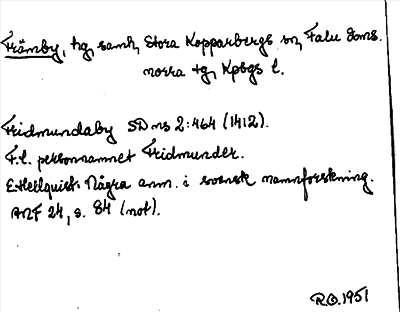 Främby, tg, samt, Stora Kopparbergs sn, Falu doms.
norra tg, Kpbgs l.
Fridmundaby SD ns 2:464 (1412).
F.l. personnamnet Fridmunder.
E. Hellquist: Några anm. i svensk namnforskning.
ANF 24, s. 84 (not).
R.O. 1951